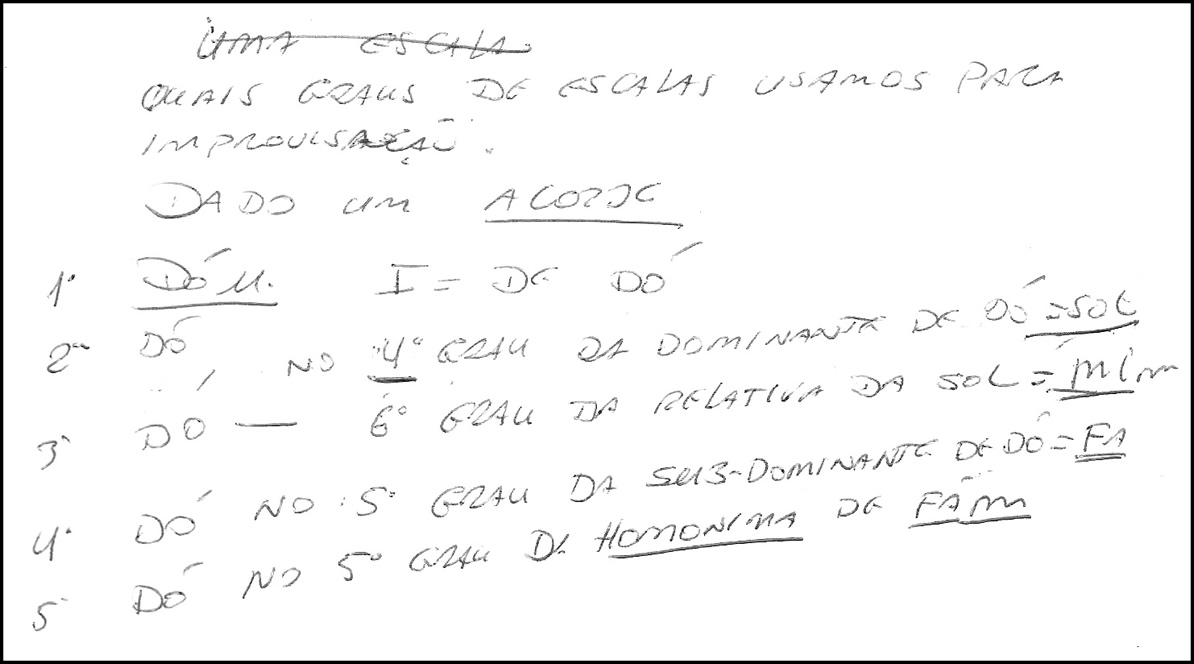 UMA ESCALA
QUAIS GRAUS DE ESCALAS USAMOS PARA
IMPROVISAÇÃO.
DADO UM ACORDE
1º DÓ M. I = DE DÓ
2º DÓ NO 4º GRAU DA DOMINANTE DE DÓ = SOL
3º DÓ — 6º GRAU DA RELATIVA DA SOL = MÍm
4º DÓ NO 5º GRAU DA SUB-DOMINANTE DE DÓ = FA
5º DÓ NO 5º GRAU DA HOMONIMA DE FÁm